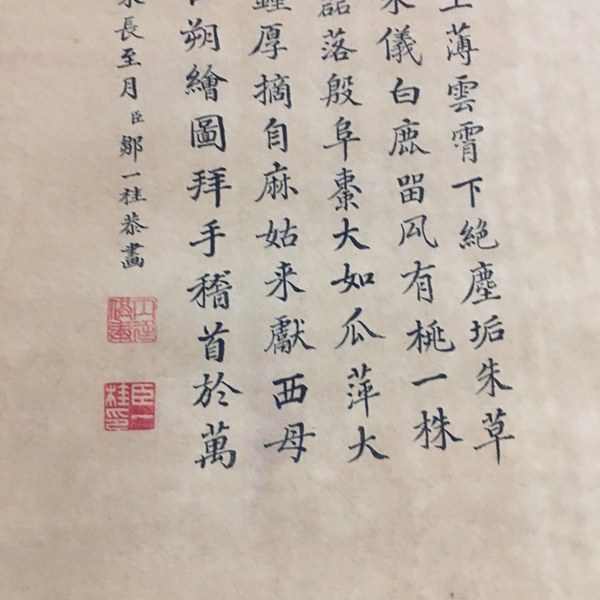 上薄雲霄下絕塵垢朱草
來儀白鹿畱凨有桃一株
磊落殷阜棗大如瓜萍大
鐘厚摘自麻姑来獻西母
朔繪圖拜手稽首於萬
長至月臣鄒一桂恭畫
臣一桂印